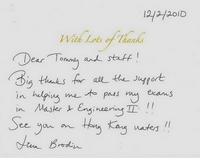 12/2/2010
With Lots of Thanks
Dear Tommy and staff!
Big thanks for all the support
in helping me to pass my exams
in Master & Engineering II !!
See you on Hong Kong waters!!
Brodin